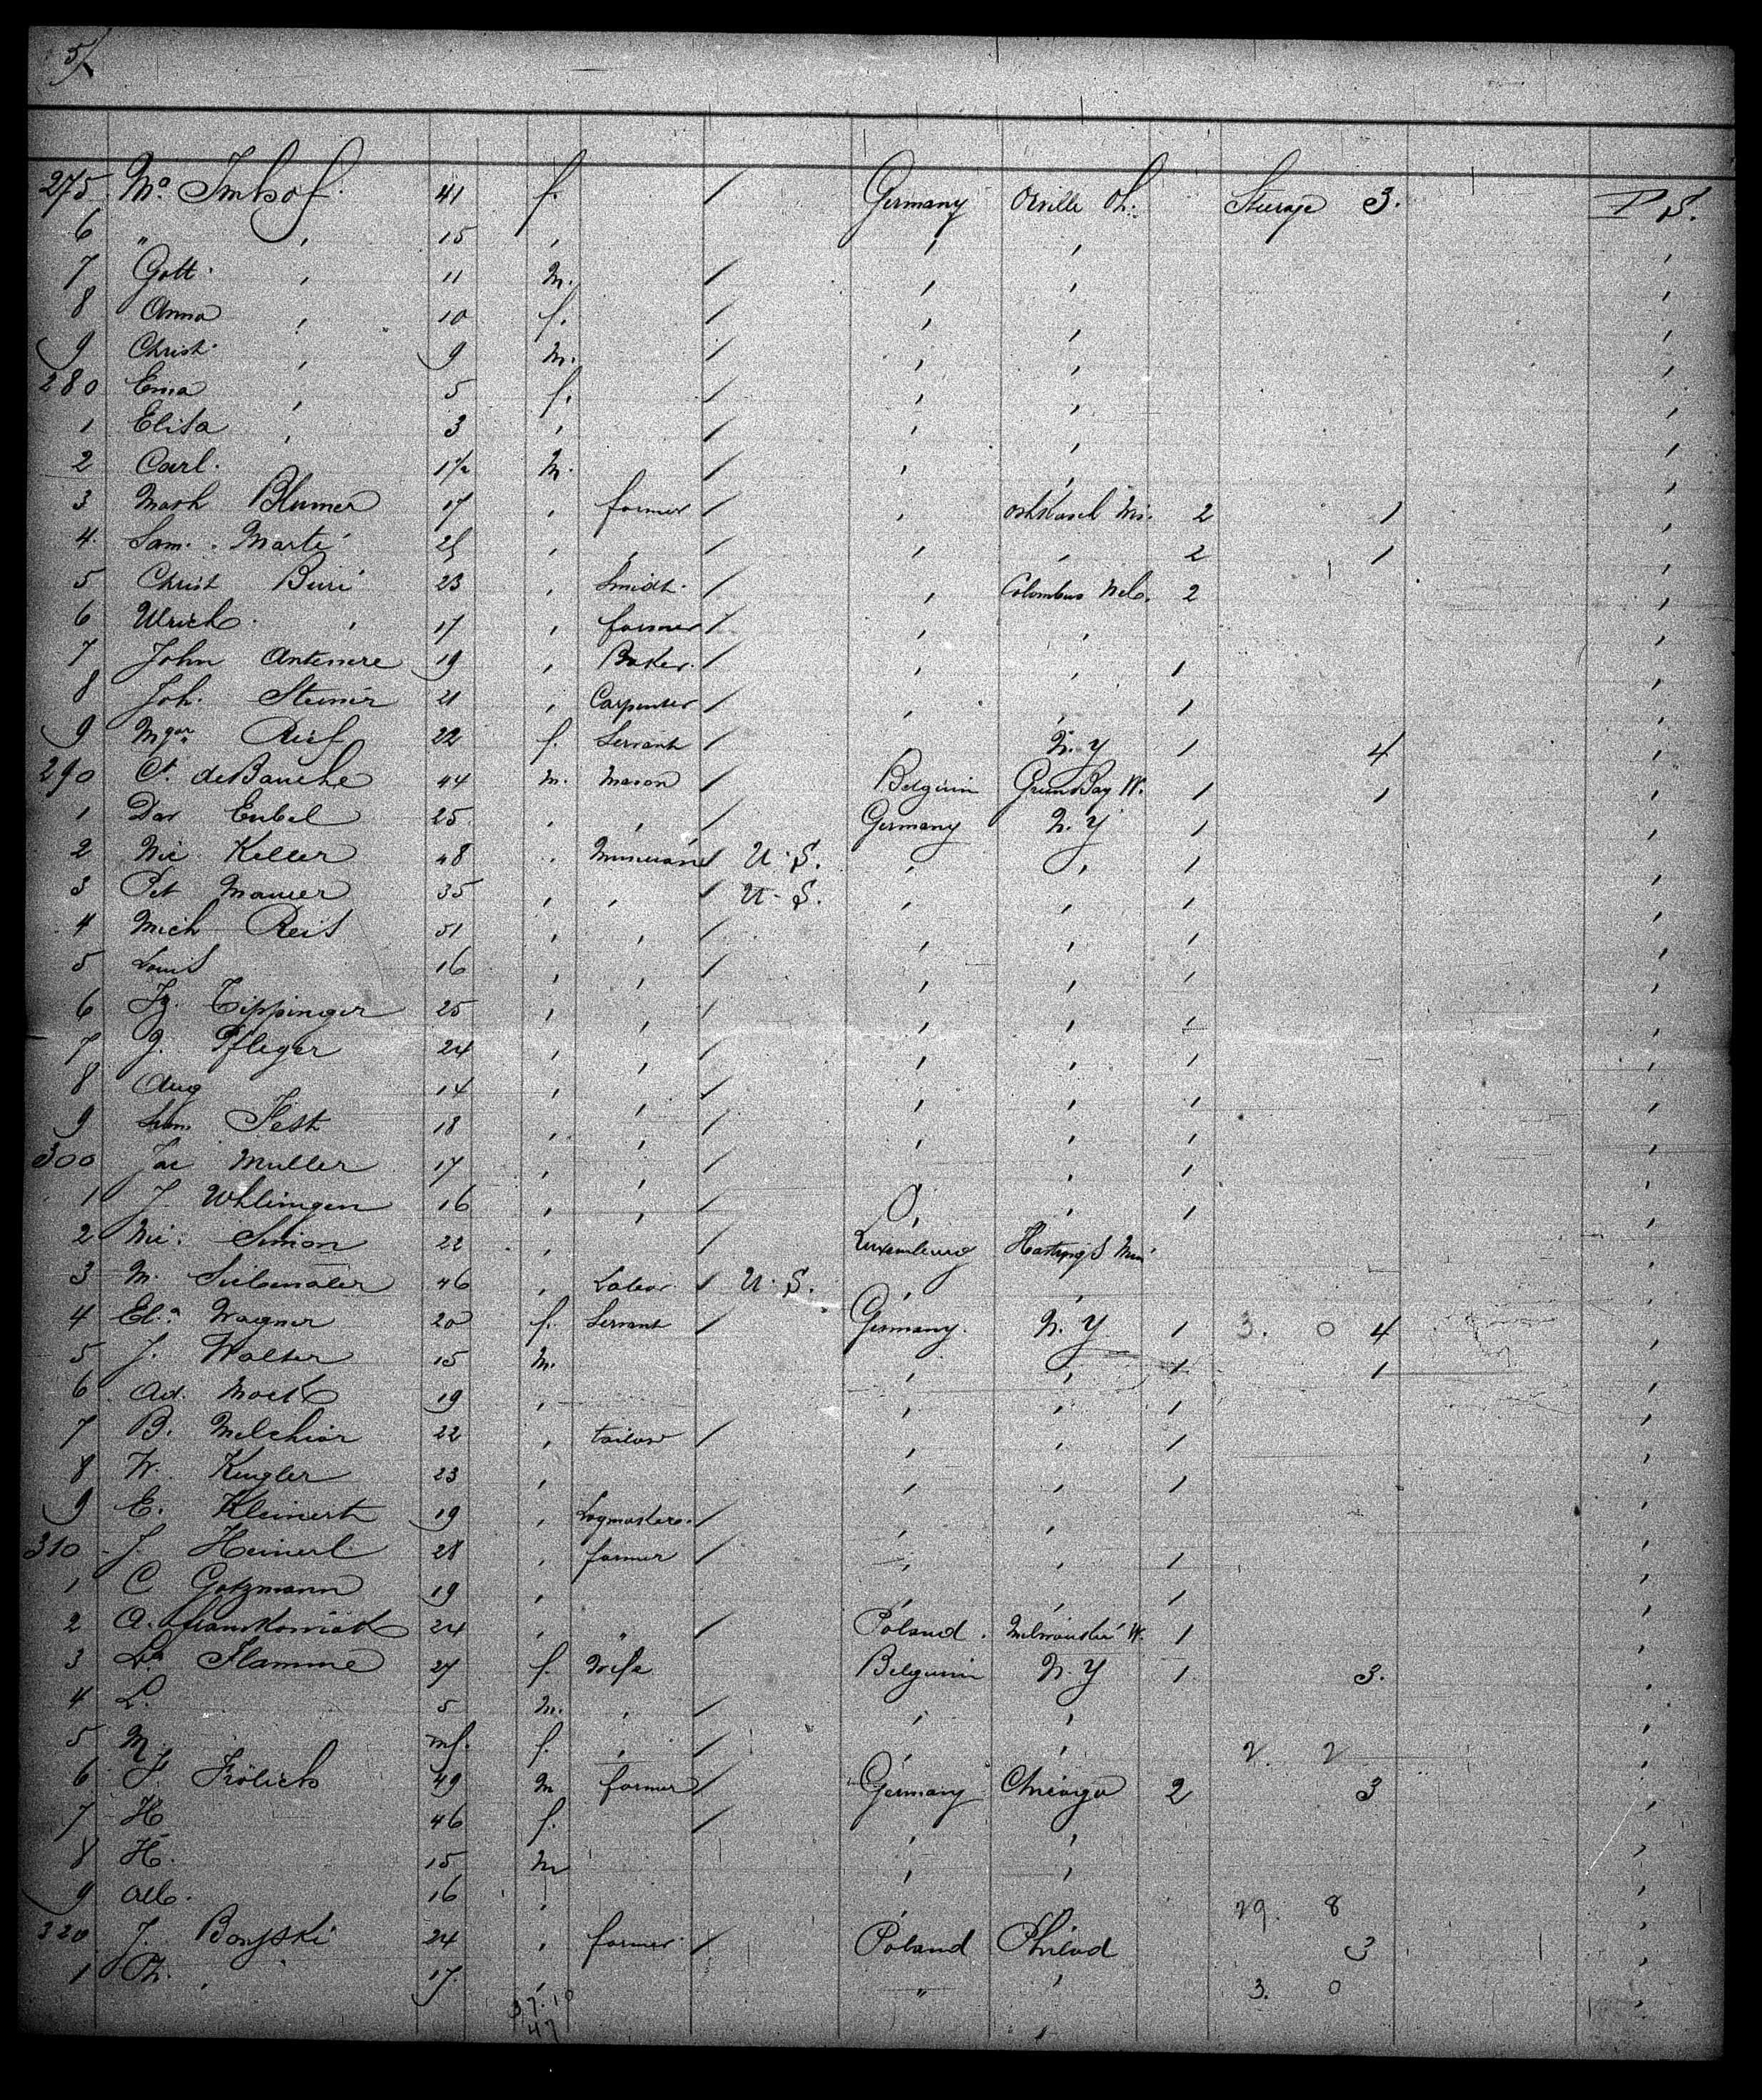 5/
275 Ma. Imhof 41 f. / Germany Orville Oh. Steerage 3. P S.
6 " , 15 , , , ,
7 Gott. , 11 M. / , , ,
8 Anna , 10 f. / , , ,
9 Christ. , 9 M. / , , ,
280 Ema , 5 f. / , , ,
1 Elisa , 3 , / , , ,
2 Carl. 1½ M. / , , ,
3 Math Blumer 17 , farmer / , Oshkosch Wis. 2 1 ,
4. Sam. Marti , , / , , 2 1 ,
5 Christ Buri 23 , Smidt. / , Colombus Neb. 2 ,
6 Ulrich. , 17 , farmer / , , ,
7 John Antenere 19 , Baker. / , , 1 ,
8 Joh. Steiner 21 , Carpenter / , , 1 ,
9 Mgar. Reif 22 f. Servant / N. Y 1 4 ,
290 Ct. deBauche 44 M. Mason / Belgium Green Bay W. 1 1 ,
1 Dav Enbel 25 , , / Germany N. Y 1 ,
2 Nic Keller 48 , Musician / U. S. , , 1 ,
3 Pet Maurer 35 , , / U. S. , , 1 ,
4 Mich Reis 51 , , / , , 1 ,
5 Louis 16 , , / , , , ,
6 Jg. Tippinger 25 , , / , , , ,
7 J. Pfleger 24 , , / , , , ,
8 Aug 14 , , / , , , ,
9 Sim. Fest 18 , , / , , , ,
300 Jac Muller 17 , , / , , 1 ,
1 J. Uhlingen 16 , , / , , 1 ,
2 Nic. Simon 22 , / Luxemburg Hastings Min ,
3 M. 46 , Labor. / U. S. , , ,
4 El.a Wagner 20 f. Servant / Germany. N. Y 1 3. 0 4 ,
5 J. Walter 15 M. , , 1 1 ,
6 Ad. 19 , , , 1 ,
7 B. Melchior 22 , tailor / , , 1 ,
8 W. Kugler 23 , , , 1 ,
9 E. Kleinert 19 , / , , ,
310 J. Heinerl 28 , farmer / , , 1 ,
1 C Gotzmann 19 , , , 1 ,
2 A. 24 , " / Poland. Milwaukee W. 1 ,
3 La Flamme 27 f. Wife Belgium N. Y 1 3. ,
4 L. 5 M. , / , , ,
5 M inf. f. , / , , 2 2 ,
6 F. Frölich 49 M farmer / Germany Chicago 2 3 ,
7 H 46 f. / , , ,
8 H. 15 M , , ,
9 Alb. 16 , , 29. 8 ,
320 J. 24 , farmer / Poland Philad 3 ,
1 Th. , 17. , " , 3. 0 ,
37.10
47